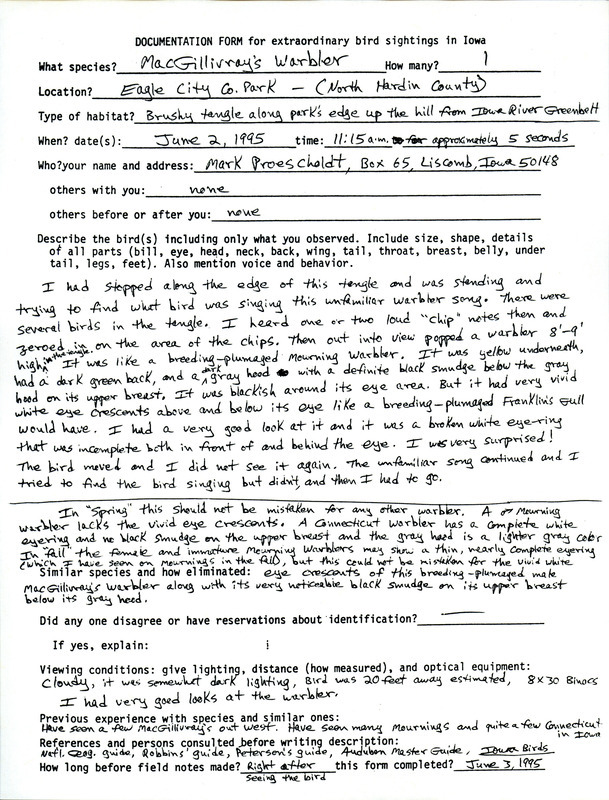 DOCUMENTATION FORM for extraordinary bird sightings in Iowa
What species? MacGillivray's Warbler How many? 1
Location? Eagle City Co. Park - (North Hardin County)
Type of habitat? Brushy tangle along park's edge up the hill from Iowa River Greenbelt
When? date(s): June 2, 1995 time: 11:15 a.m. for approximately 5 seconds
Who? your name and address: Mark Proescholdt, Box 65, Liscomb, Iowa 50148
others with you: none
others before or after you: none
Describe the bird(s) including only what you observed. Include size, shape, details
of all parts (bill, eye, head, neck, back, wing, tail, throat, breast, belly, under
tail, legs, feet). Also mention voice and behavior.
I had stopped along the edge of this tangle and was standing and
trying to find what bird was singing this unfamiliar warbler song. There were
several birds in the tangle. I heard one or two loud "chip" notes then and
zeroed in on the area of the chips. Then out into view popped a warbler 8'-9'
high in the tangle. It was like a breeding-plumaged Mourning Warbler. It was yellow underneath,
had a dark green back, and a dark gray hood with a definite black smudge below the gray
hood on its upper breast. It was blackish around its eye area. But it had very vivid
white eye crescents above and below its eye like a breeding-plumaged Franklin's Gull
would have. I had a very good look at it and it was a broken white eye-ring
that was incomplete both in front of and behind the eye. I was very surprised!
The bird moved and I did not see it again. The unfamiliar song continued and I
tried to find the bird singing but didn't, and then I had to go.
In "Spring" this should not be mistaken for any other warbler. A Mourning
Warbler lacks the vivid eye crescents. A Connecticut Warbler has a complete white
eyering and no black smudge on the upper breast and the gray hood is a lighter gray color
In "fall" the female and immature Mourning Warblers may show a thin, nearly complete eyering
(which I have seen on Mournings in the fall), but this could not be mistaken for the vivid white
Similar species and how eliminated: eye crescents of this breeding-plumaged male
MacGillivray's Warbler along with its very noticeable black smudge on its upper breast
below its gray hood.
Did any one disagree or have reservations about identification?
If yes, explain:
Viewing conditions: give lighting, distance (how measured), and optical equipment:
Cloudy, it was somewhat dark lighting, Bird was 20 feet away estimated, 8x30 Binocs
I had very good looks at the warbler.
Previous experience with species and similar ones:
Have seen a few MacGillivray's out west. Have seen many Mournings and quite a few Connecticut
in Iowa
References and persons consulted before writing description:
Nat'l. Geog. guide, Robbins' guide, Peterson's guide, Audubon Master Guide, Iowa Birds
How long before field notes made? Right after this form completed? June 3, 1995
seeing the bird